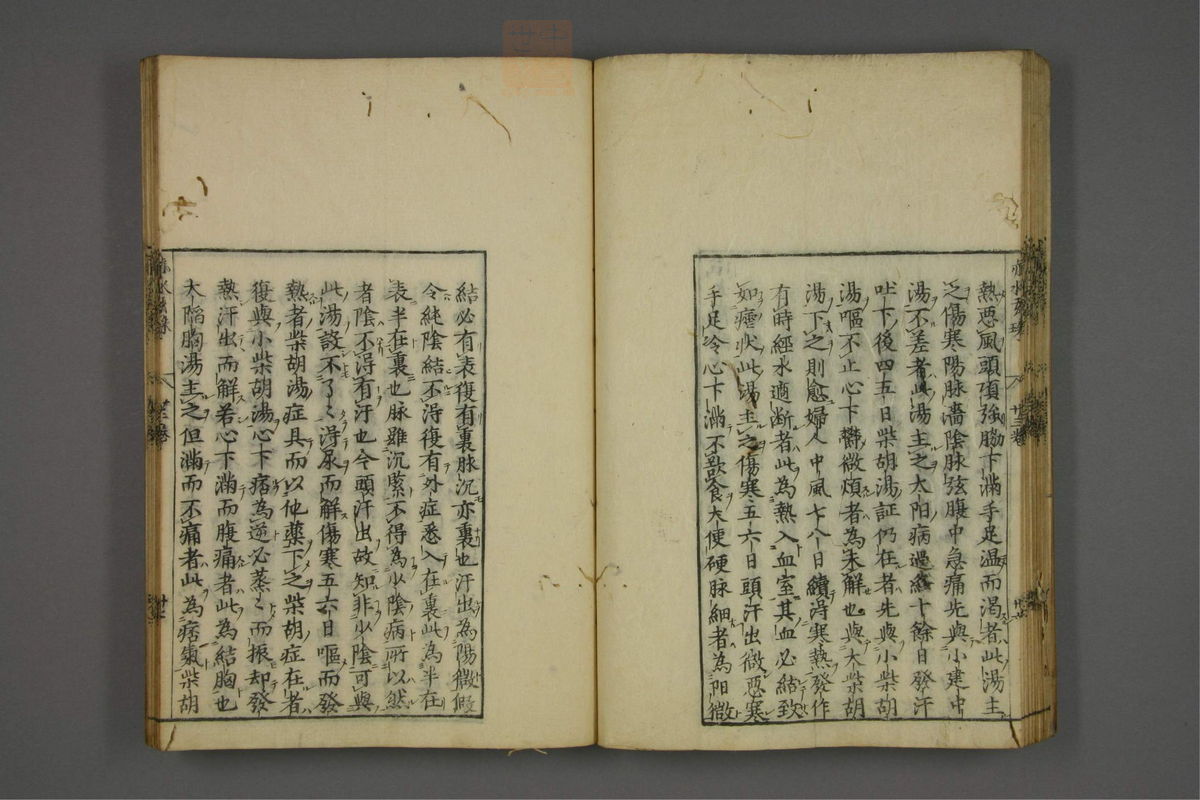 熱惡風頭項強脇下滿手足温而渴者此湯主
之傷寒陽脉濇陰脉弦腹中急痛先與小建中
湯不差者此湯主之太阳病過經十餘日發汗
吐下後四五日柴胡湯証仍在者先與小柴胡
湯嘔不止心下欝微煩者為未解也與大柴胡
湯下之則愈婦人中風七八日續淂寒熱發作
有時經水適断者此為熱入血室其血必結致
如瘧状此湯主之傷寒五六日頭汗出微惡寒
手足冷心下滿不欲食大便硬脉細者為阳微
結必有表復有裏脉沉亦裏也汗出為陽微假
令純陰結不淂復有外症悉入在裏此為半在
表半在裏也脉雖沉緊不得為少陰病所以然
者陰不淂有汗也今頭汗出故知非少陰可與
此湯設不了〻淂尿而解傷寒五六日嘔而發
熱者柴胡湯症具而以他藥下之柴胡症在者
復與小柴胡湯心下痞為逆必蒸〻而振却發
熱汗出而解若心下滿而腹痛者此為結胸也
大陷胸湯主之但滿而不痛者此為痞氣柴胡